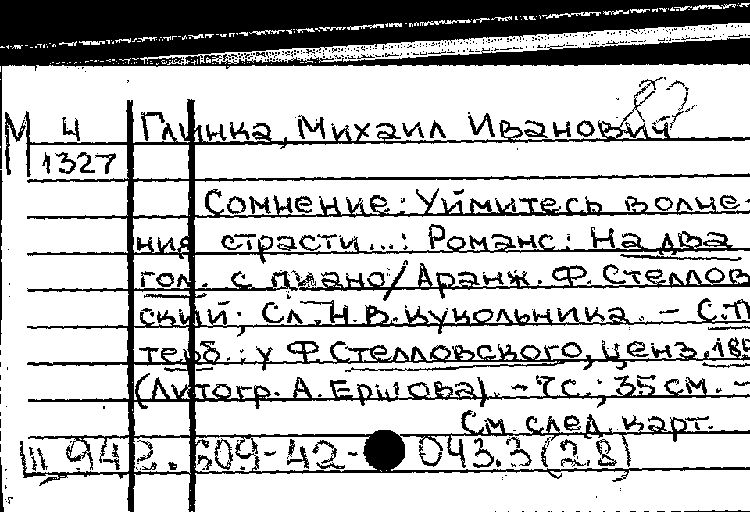 87
М 4 Глинка, Михаил Иванович
1327
Сомнение: Уймитесь волне-
ния страсти...: Романс: На два
гол. с пиано/Аранж. Ф. Стеллов
ский; Сл. Н.В. Кукольника. – С.П
терб.: у Ф. Стелловского, ценз. 185
(Литогр. А. Ершова). – 7 с.; 35 см. –
См. след. карт.
III 942. 609-42- 043.3 (28)